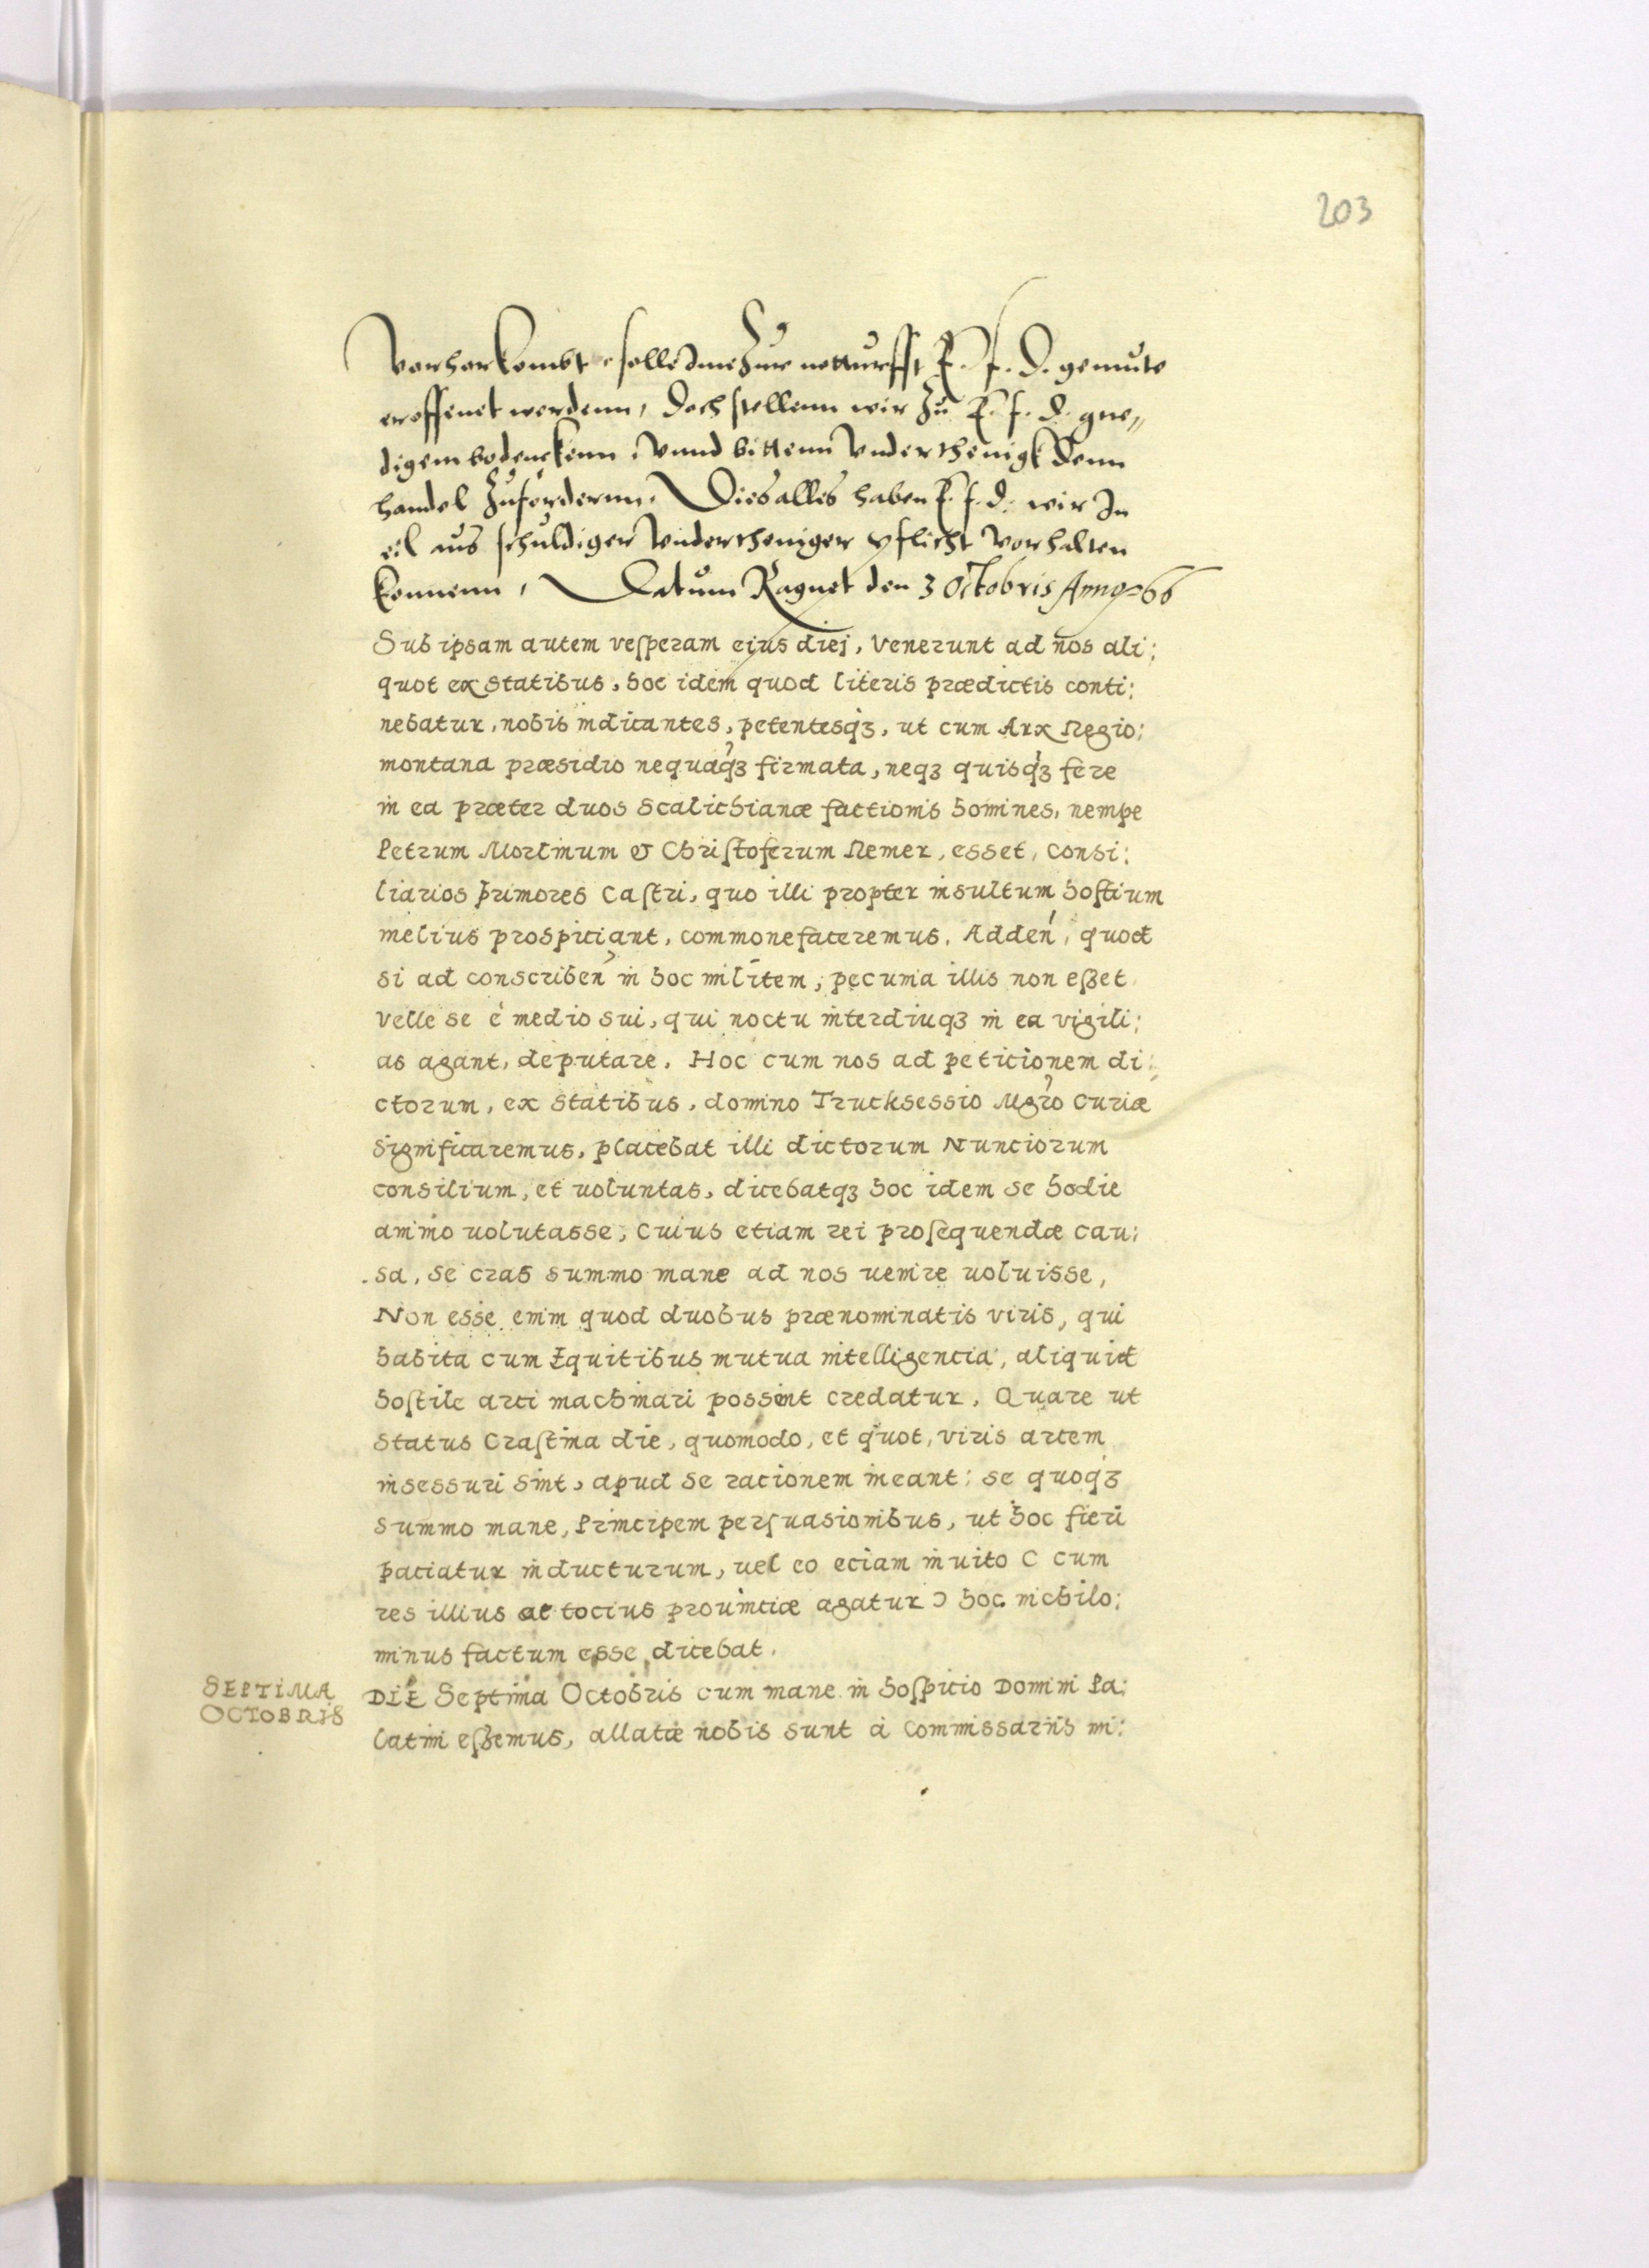 203
vorherkombt, solle dine Zur notturfft E. f. D. gemute
eroffenet werdenn, Doch stellenn wir Zu E. f. d. gne„
digem bedenckenn, vnnd bittenn vnderthenigk Denn
handel Zufordernn. Dies alles haben E. f. d. wir In
eil aus schuldiger vnndertheniger pflicht vorhalten
konnenn, Datum Ragnet den 3 Octobris Anno 66
Sub ipsam autem vesperam ejus diej, venerunt ad nos ali:
quot ex statibus, hoc idem quod literis prædictis conti:
nebatur, nobis indicantes, petentesqȝ, ut cum Arx Regio:
montana præsidio nequaqȝ firmata, neqȝ quisqȝ fere
in ea præter duos Scalichianæ factionis homines, nempe
Petrum Morlinum & Christoferum Nemer, esset, consi:
liarios primores Castri, quo illi propter insultum hostium
melius prospiciant, commonefaceremus. Adden̄, quod
si ad conscriben̄ in hoc militem, pecunia illis non eßet
velle se è medio sui, qui noctu interdiuqȝ in ea vigili:
as agant, deputare. Hoc cum nos ad peticionem di:
ctorum, ex statibus, domino Trucksessio Mgr̄o Curiæ
significaremus, placebat illi dictorum Nunciorum
consilium, et uoluntas, dicebatqȝ hoc idem se hodie
animo uolutasse, cuius etiam rei prosequendæ cau:
sa, se cras summo mane ad nos uenire uoluisse,
Non esse enim quod duobus prænominatis viris, qui
habita cum Equitibus mutua intelligencia, aliquid
hostile arci machinari possint credatur. Quare ut
status Crastina die, quomodo, et quot, viris arcem
insessuri sint, apud se racionem ineant: se quoqȝ
summo mane, Principem persuasionibus, ut hoc fieri
paciatur inducturum, uel eo eciam inuito C cum
res illius ac tocius prouinciæ agatur Ɔ hoc nichilo:
minus factum esse dicebat.
SEPTIMA
OCTOBRIS
DIE Septima Octobris cum mane in hospicio Domini Pa:
latini eßemus, allatæ nobis sunt à Commissariis mi: